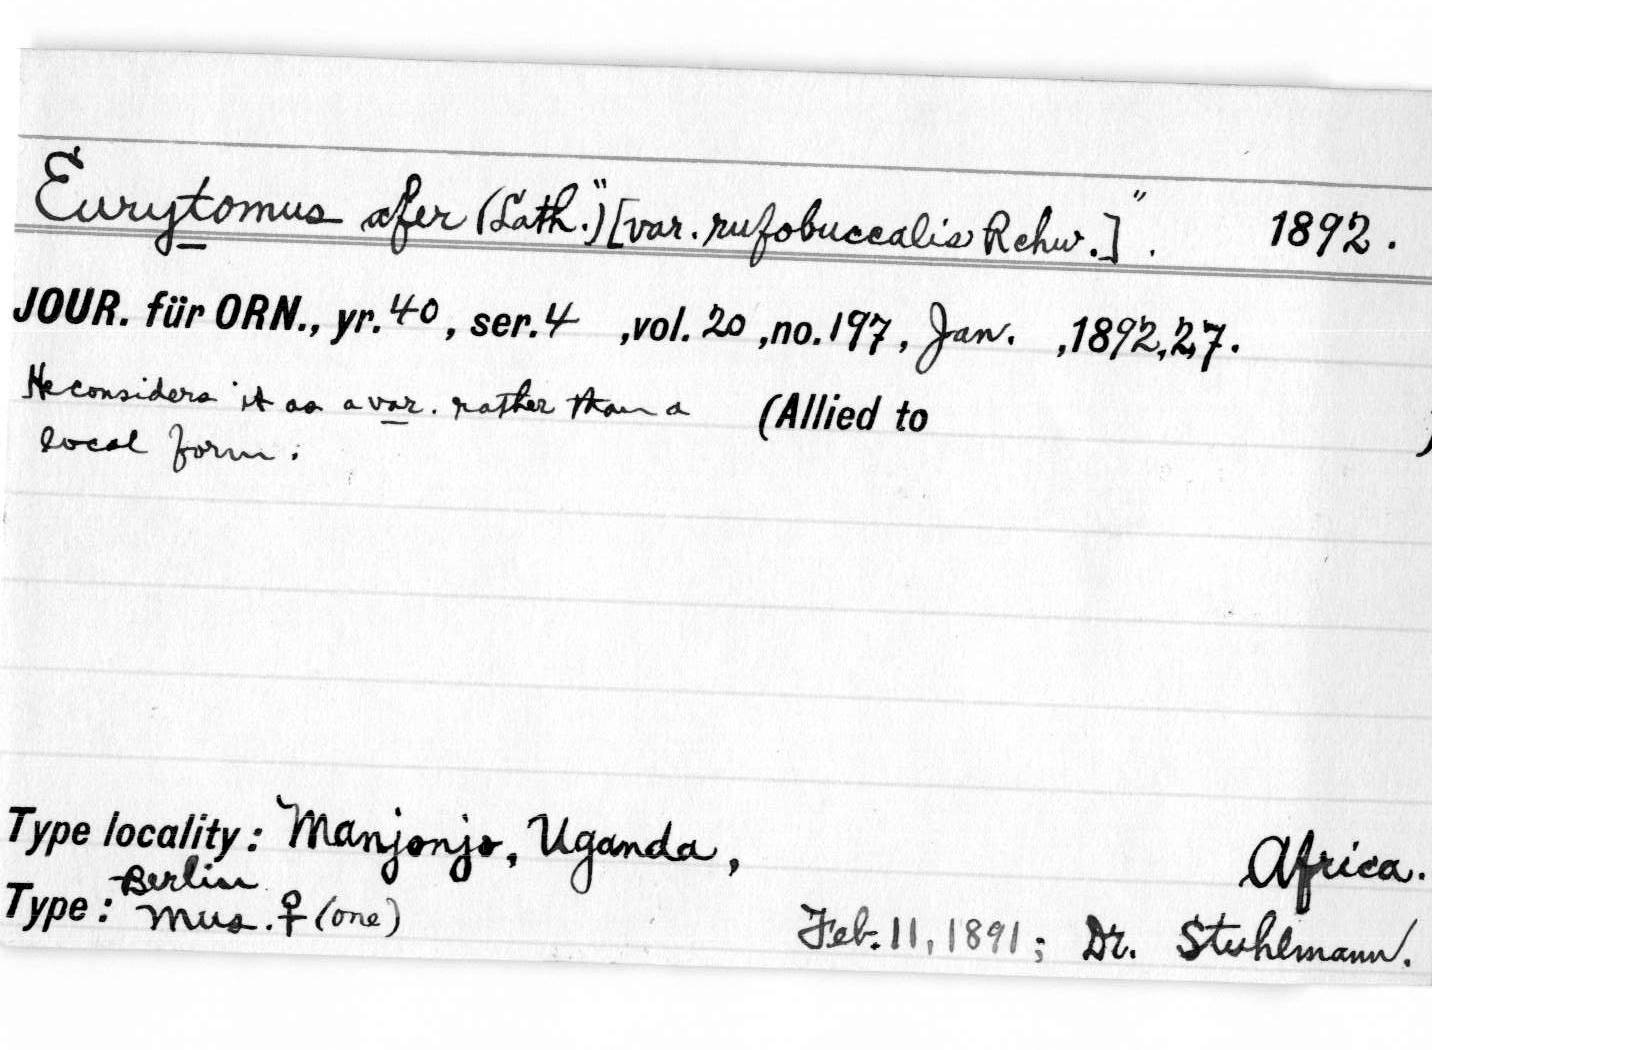 Eurytomus afer (Lath.") [var. rufobuccalis Rchw.]". 1892.
JOUR. für ORN., yr. 40, ser. 4 ,vol. 20 ,no. 197, Jan. ,1892, 27.
He considers it as a var. rather than a (Allied to )
local form.
Type locality: Manjonjo, Uganda, Africa.
Berlin
Type: Mus. ♀ (one) Feb. 11, 1891; Dr. Stuhlmann.